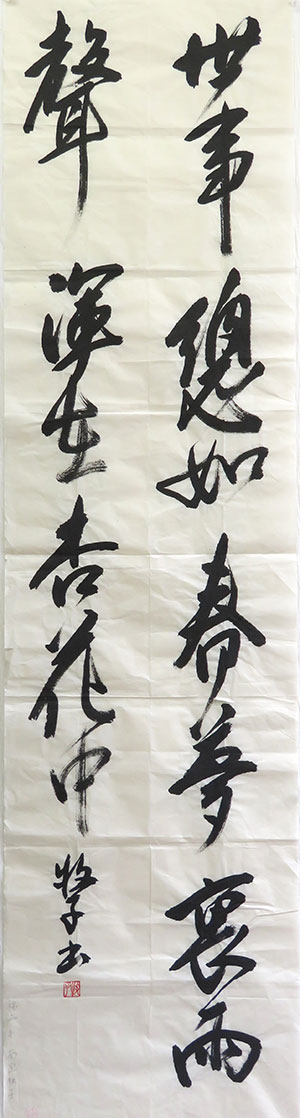 世事總如春夢裏雨
聲渾在杏花中
牧子书